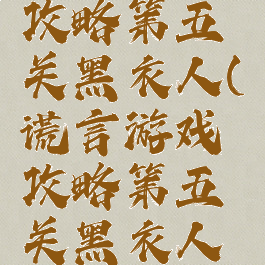 攻略第五
关黑衣人(
谎言游戏
攻略第五
关黑衣人